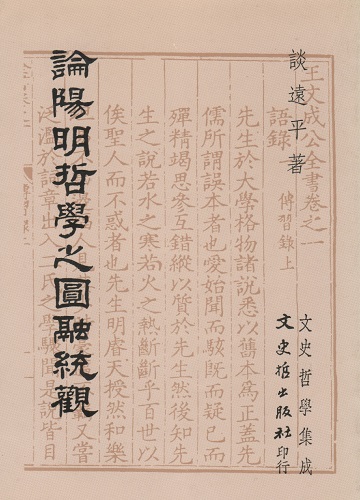 王文成公全書卷之一
談遠平著
語錄
傳習錄上
文史哲學集成
文史哲出版社印行
先生於大學格物諸說悉以舊本為正蓋先
儒所謂誤本者也愛始聞而駭既而疑已而
殫精竭思參互錯縱以質於先生然後知先
生之說若水之寒若火之熱斷斷乎百世以
俟聖人而不惑者也先生明睿天授然和樂
論陽明哲學之圓融統觀
又嘗
泛濫於詞章出入 氏之學驟聞是說皆目